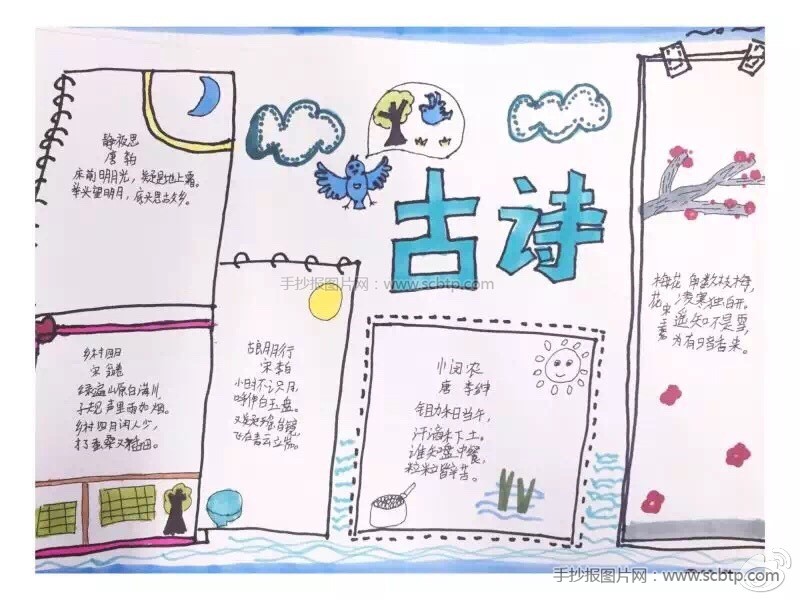 古诗
静夜思
唐
床前明月光，疑是地上霜。
举头望明月，
手抄报图片网：www.scbtp.com
乡村四月
宋
绿遍山原白满川，
子规声里雨如烟。
乡村四月闲人少，
古朗月行
宋李白
小时不识月，
呼作白玉盘。
又疑
飞在青云
小闵农
唐 李绅
锄禾日当午，
汗滴禾下土。
谁知盘中餐，
粒粒皆辛苦。
梅花
数枝梅，
凌寒独自开。
遥知不是雪，
为有
香来。
手抄报图片网：www.scbtp.com